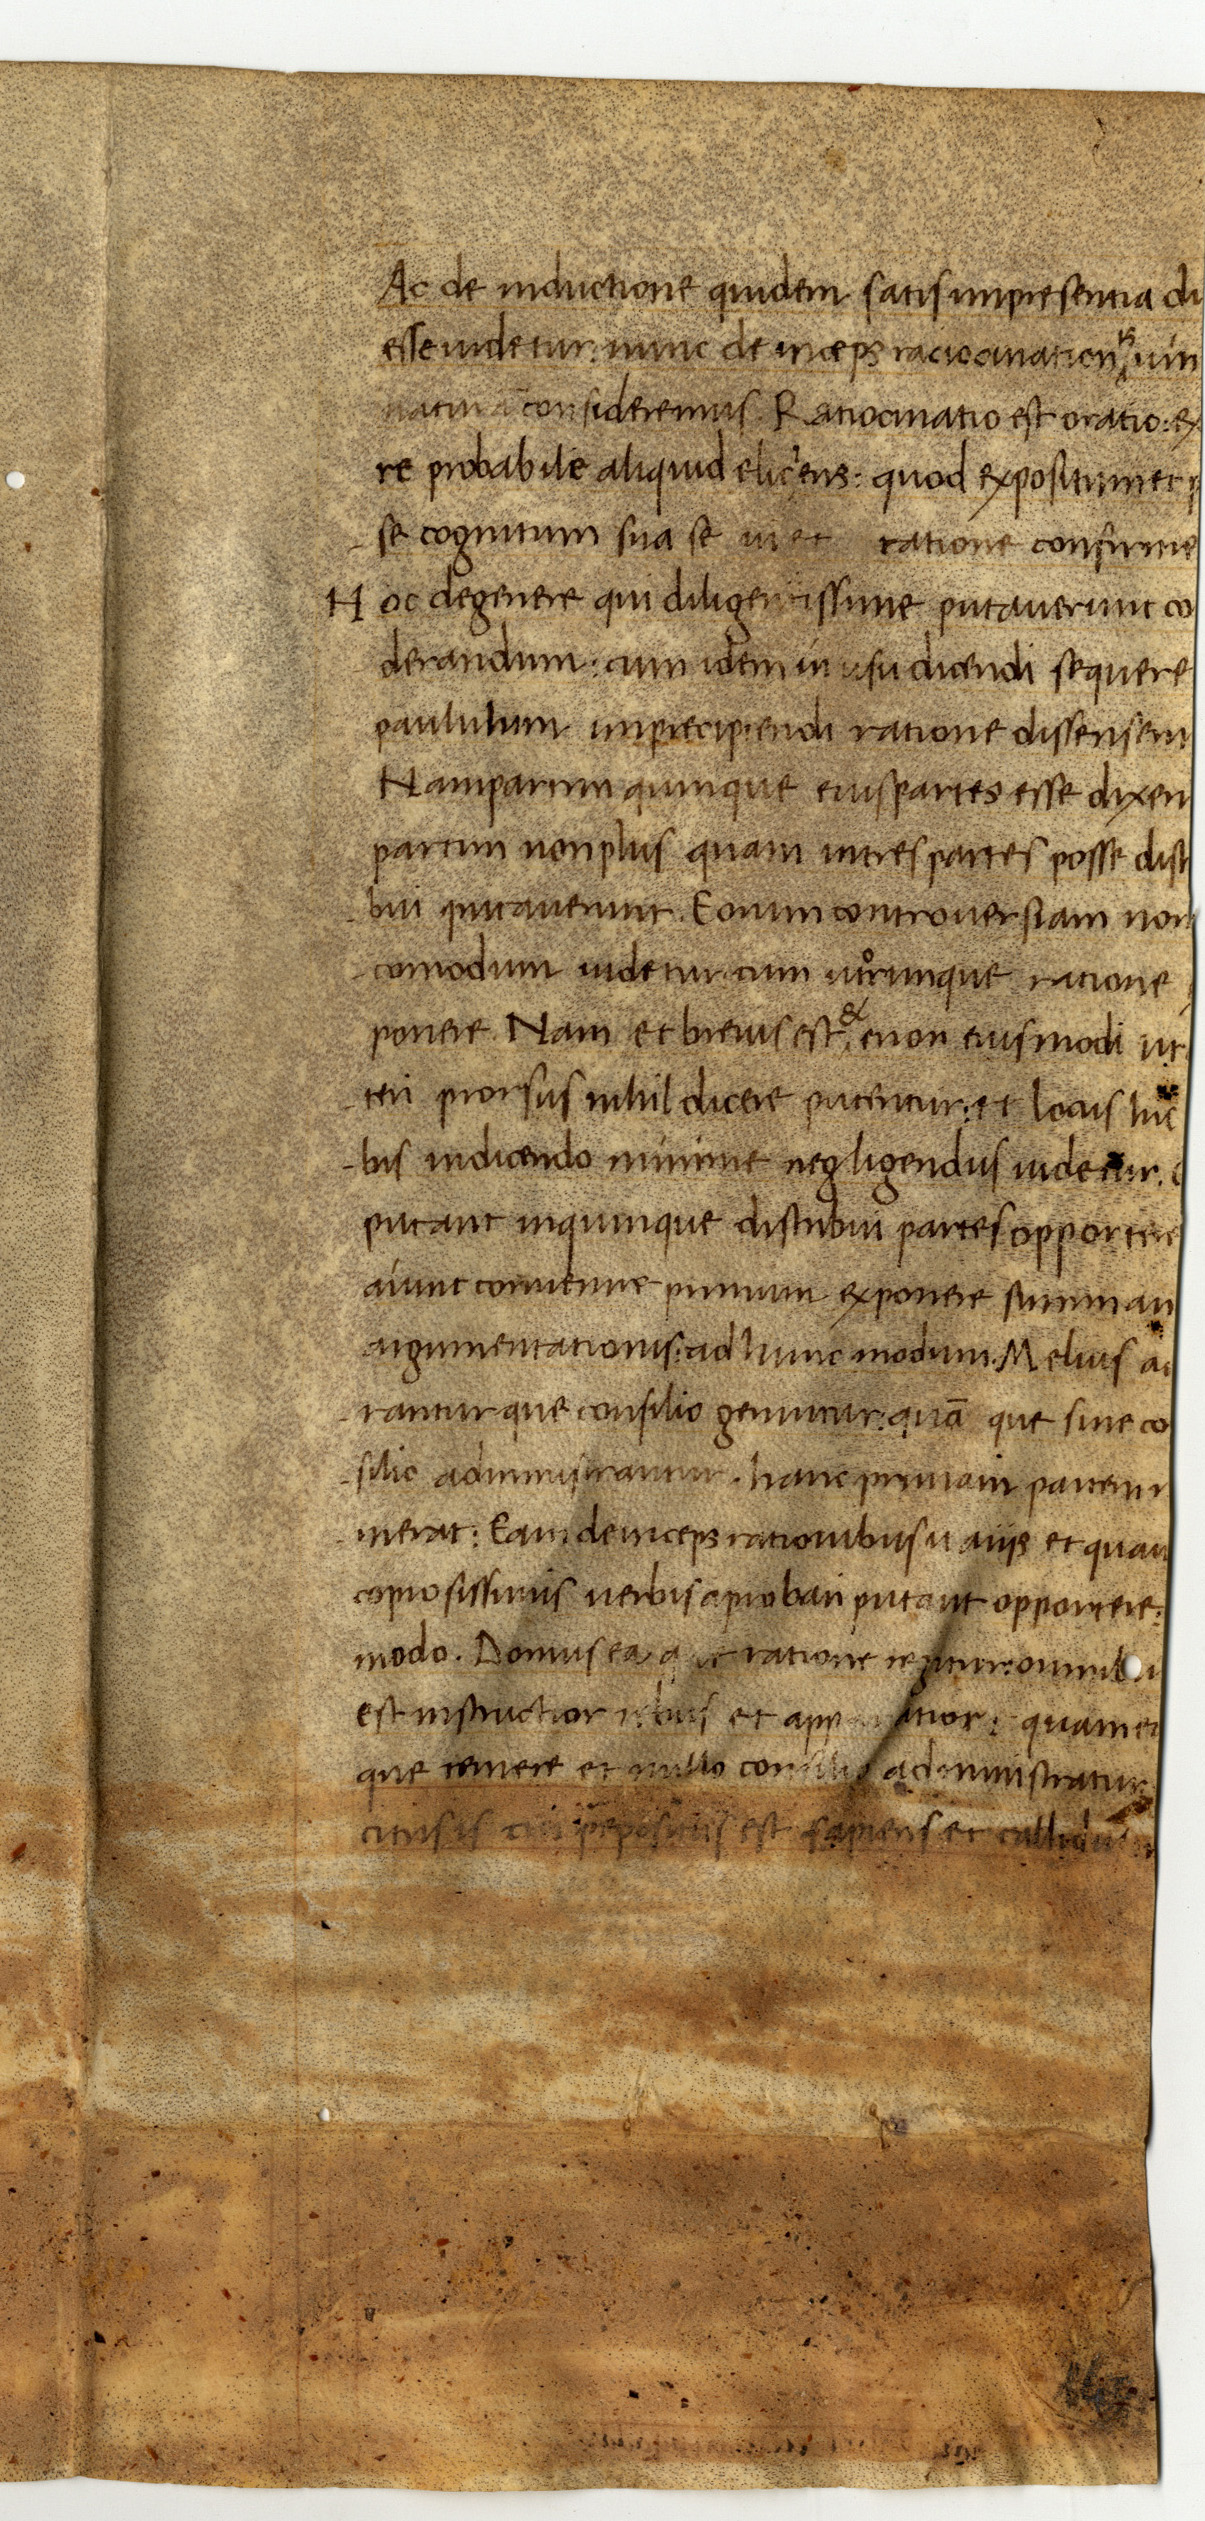 Ac de inductione quidem satis inpresentia di
esse uidetur. nunc de inceps raciocination is uim
naturā consideremus. Ratiocinatio est oratio: ex
re probabile aliquid eliciens: quod expositum et p
se cognitum sua se ui et ratione confirme
Hoc degenere qui diligentissime putauerunt co
derandum: cum idem in usu dicendi sequere
paululum inprecipiendi ratione dissenserun
Nam partim quinque eius partes esse dixeru
partim non plus quam in tres partes posse distr
bui putauerunt. Eorum controuersiam non
comodum uidetur cum utrorunque ratione
ponere. Nam et breuis est & non eiusmodi ut
teri prorsus nihil dicere putentur: et locus hic
bis indicendo minime negligendus uidetur.
putant inquinque distribui partes opportere
aiunt conuenire primum exponere summam
argumentationis: ad hunc modum. Melius ac
rantur que consilio geruntur: quā que sine co
silio administrantur. hanc primam partem
merat: Eam deinceps rationibus uariis et quam
copiosissimis uerbis aprobari putant opportere:
modo. Domus ea que ratione regitur: omnibus
est instructior rebus et apparatior: quam ea
que temere et nullo consilio administratur
citus is cui prepositus est sapiens et callidus